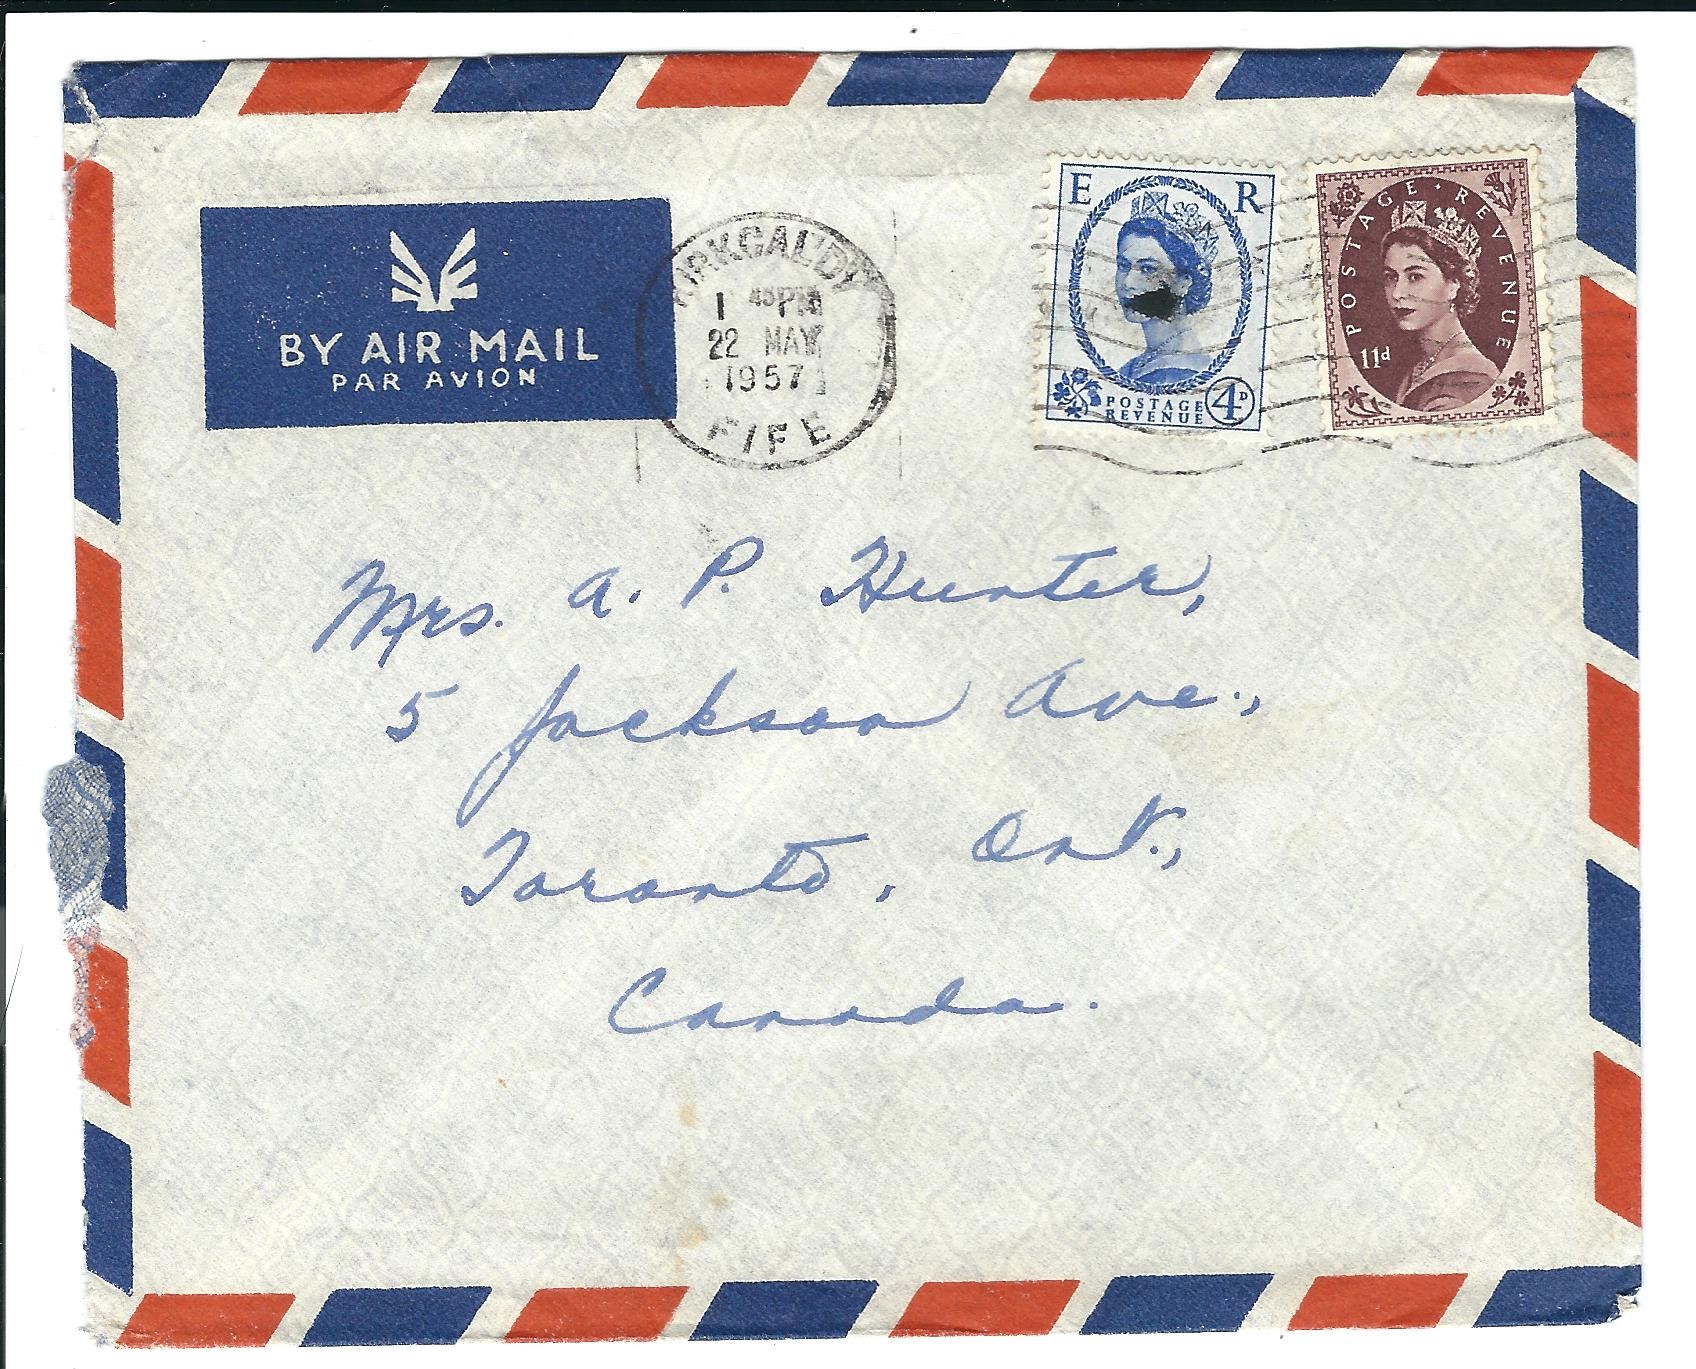 BY AIR MAIL
PAR AVION
KIRKCALDY
1 45 PM
22 MAY
1957
FIFE
E R
POSTAGE
REVENUE
4D
POSTAGE · REVENUE
11d
Mrs. A. P. Hunter,
5 Jackson Ave.,
Toronto, Ont.,
Canada.